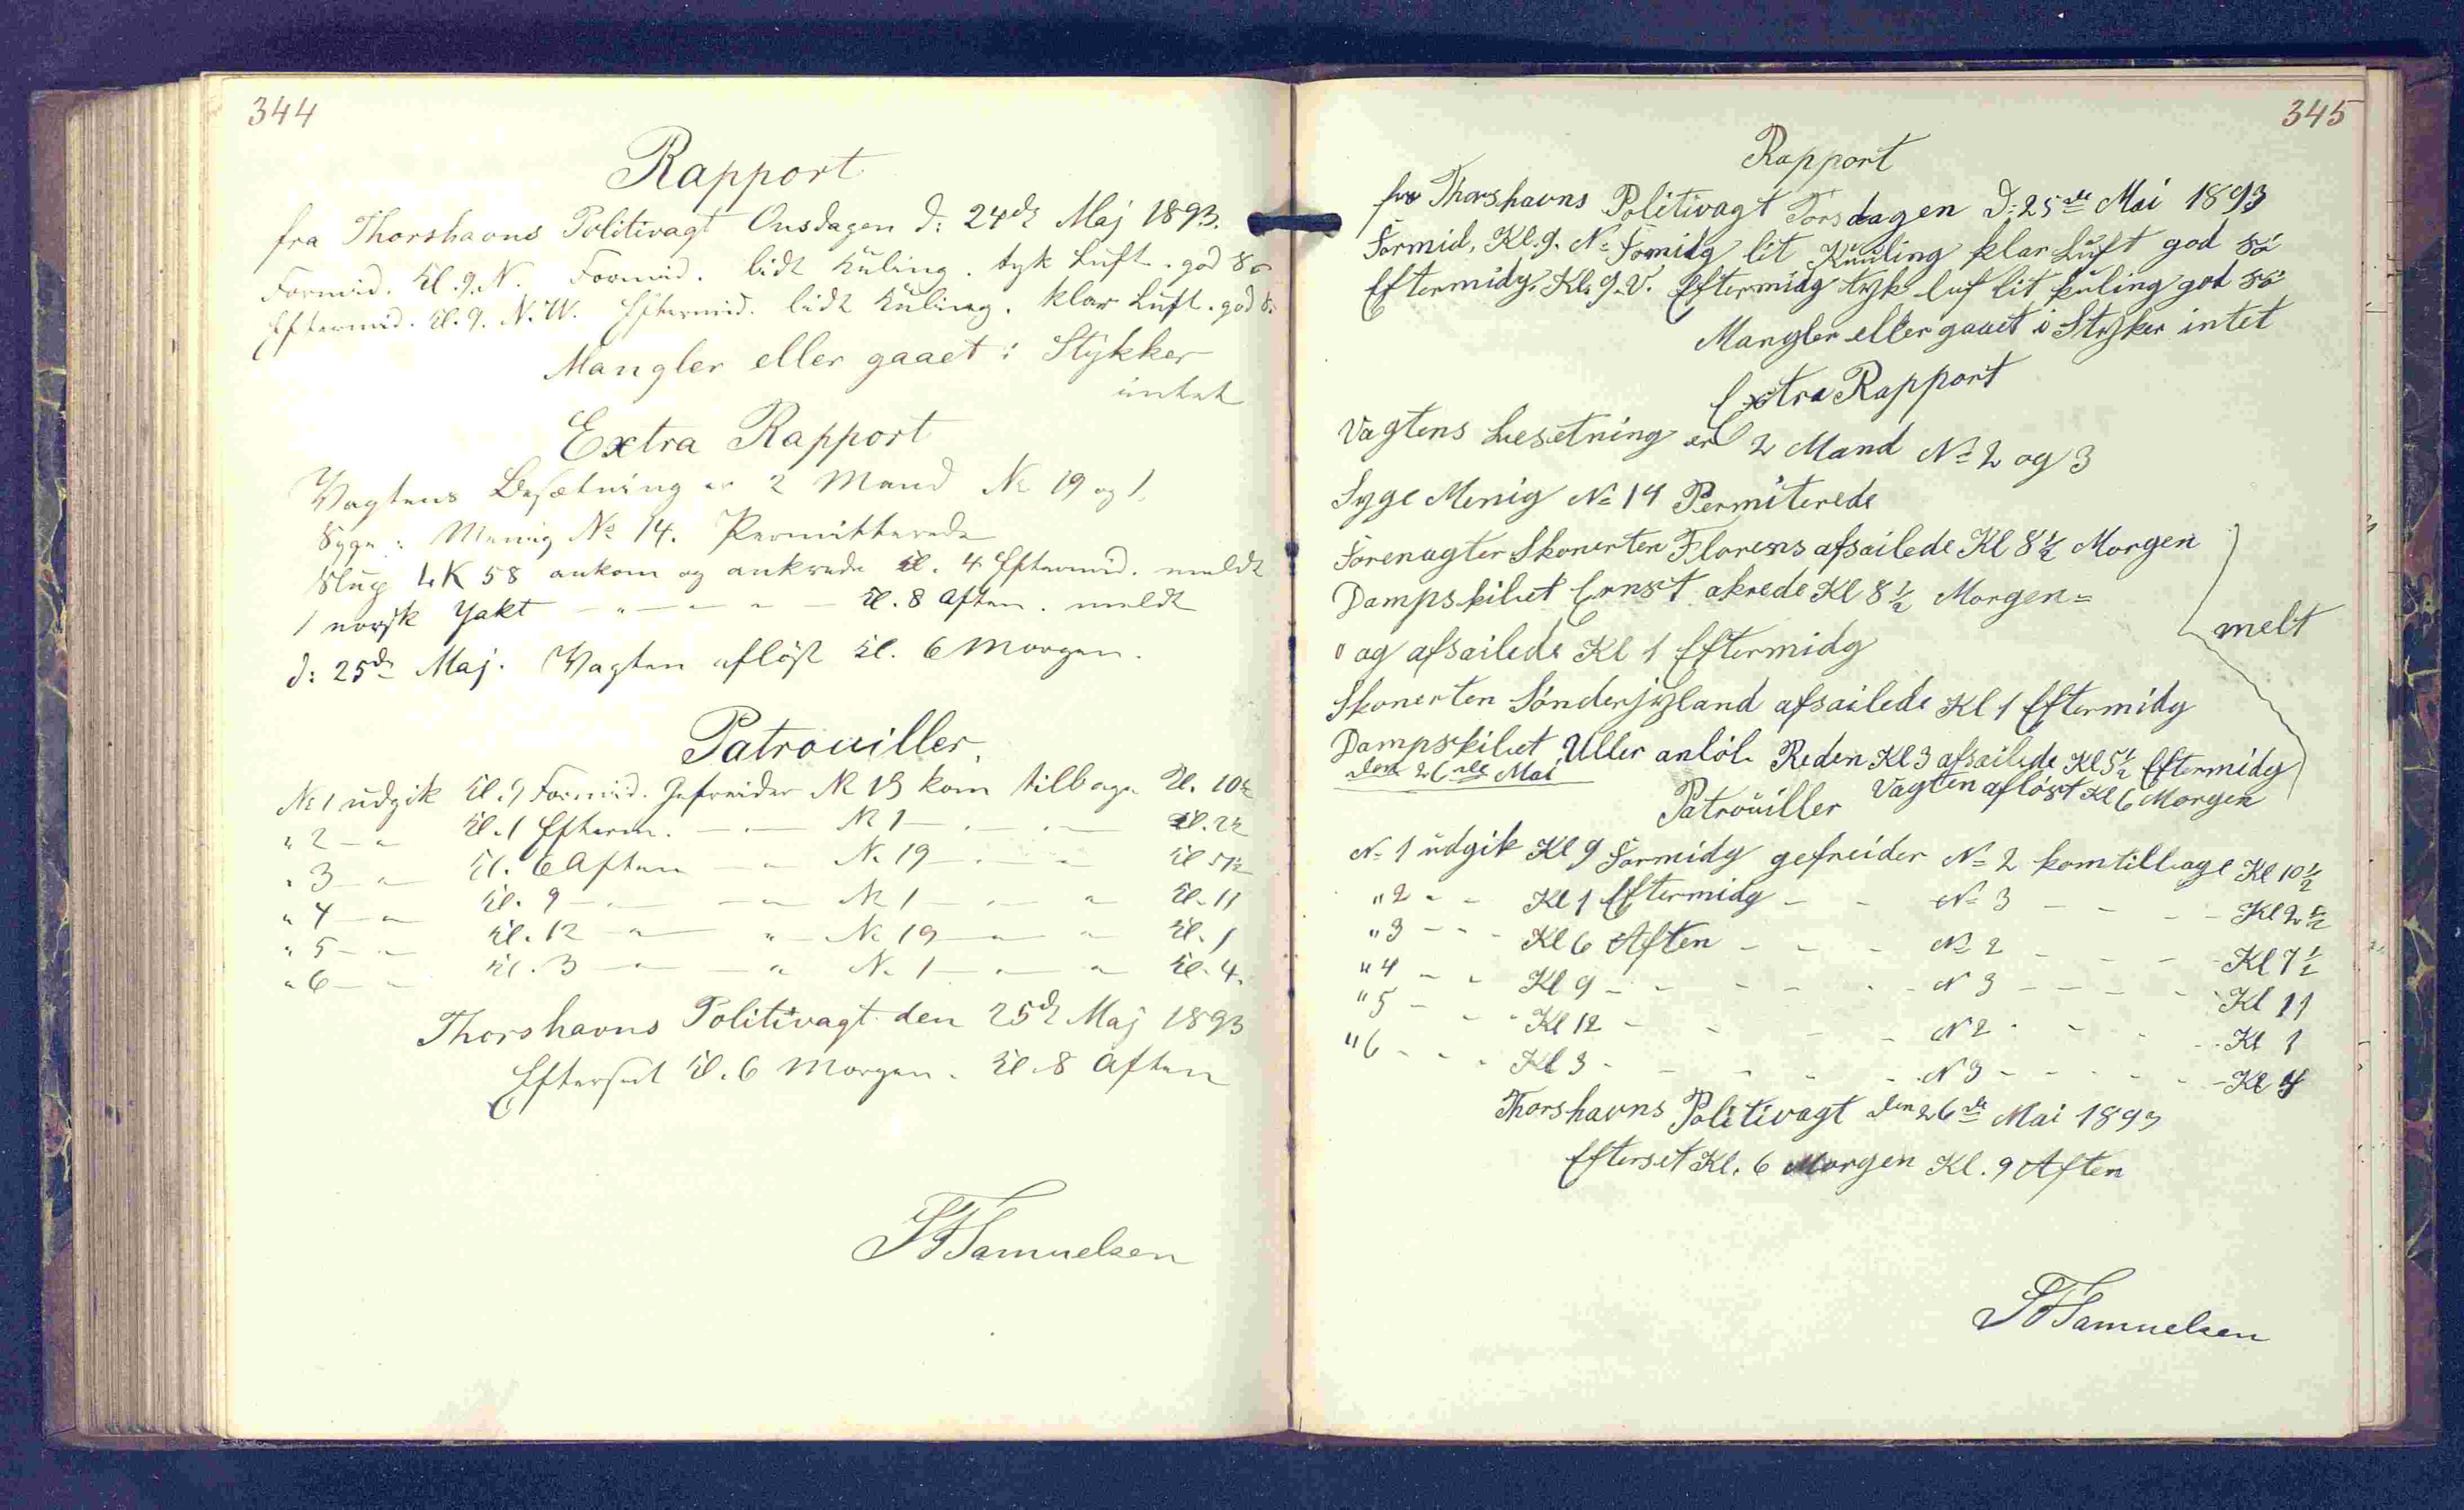 344
Rapport
fra Thorshavns Politivagt Onsdagen d: 24de Maj 1893.
Formid. Kl. 9. N. Formid. lidt Kuling. tyk Luft. god Sö
Eftermid. Kl. 9. N.W. Eftermid. lidt Kuling. klar Luft. god S.
Mangler eller gaaet i Stykker
intet
Extra Rapport
Vagtens Besætning er 2 Mand No 19 og 1.
Syge: Menig No 14. Permitterede
Slup LK 58 ankom og ankrede Kl. 4 Eftermid. meldt
1 norsk Yakt — " — " — " — Kl. 8 Aften. meldt
d: 25de Maj. Vagten aflöst Kl. 6 Morgen.
Patrouiller.
No 1 udgik Kl. 9 Formid. Gefreider No 19 kom tilbage Kl. 10½
" 2 — " Kl. 1 Efterm. — " — No 1 — " — " — Kl. 2½
" 3 — " Kl. 6 Aften — " No 19 — " — " Kl 7½
" 4 — " Kl. 9 — " — " No 1 — " — " Kl. 11
" 5 — " Kl. 12 — " — " — No 19 — " — " Kl. 1
" 6 — " Kl. 3 — " — " No 1 — " — " Kl. 4.
Thorshavns Politivagt den 25de Maj 1893
Efterset Kl. 6 Morgen. Kl. 8 Aften
Samuelsen
345
Rapport
fra Thorshavns Politivagt Torsdagen D: 25de Mai 1893
Formid. Kl. 9. N. Fomidg lit Kuuling klar Luft god Sö
Eftermidg. Kl. 9. V. Eftermidg tyk luf lit kuling god Sö
Mangler eller gaaet i Styker intet
Extra Rapport
Vagtens besetning er 2 Mand No 2 og 3
Syge Menig No 14 Permiterede
Forenagter Skonerten Florens afsailede Kl 8½ Morgen
Dampskibet Ernst akrede Kl 8½ Morgen =
" og afsailede Kl 1 Eftermidg
melt
Skonerten Sönderjyland afsailede Kl 1 Eftermidg
Dampskibet Uller anlöb Reden Kl 3 afsailede Kl 5½ Eftermidg
den 26de Mai Vagten aflöst Kl 6 Morgen
Patrouiller
No 1 udgik Kl 9 Formidg gefreider No 2 kom tilbage Kl 10½
" 2 - - Kl 1 Eftermidg - - No 3 - - - - Kl 2½
" 3 - - - Kl 6 Aften - - - No 2 - - - - Kl 7½
" 4 - - - Kl 9 - - - - - - N 3 - - - - - Kl 11
" 5 - - - Kl 12 - - - - N 2 - - - - - Kl 1
" 6 - - - Kl 3 - - - - - N 3 - - - - - Kl 4
Thorshavns Politivagt den 26de Mai 1893
Efterset Kl. 6 Morgen Kl. 9 Aften
Samuelsen